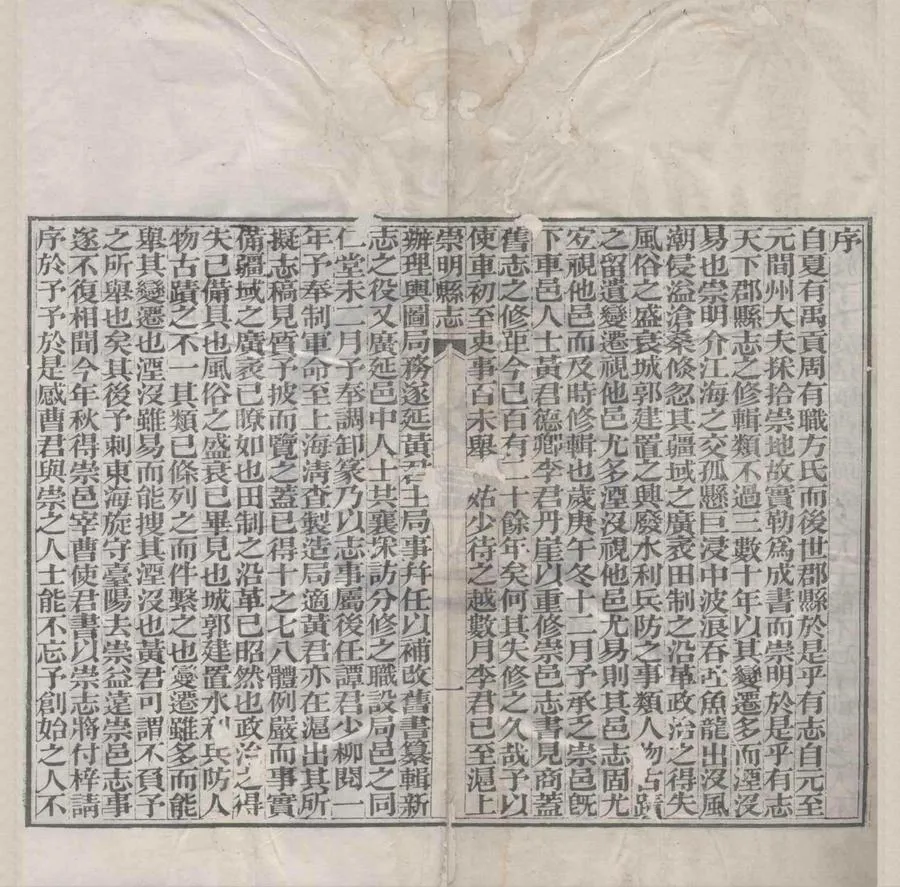 序
自夏有禹貢周有職方氏而後世郡縣於是乎有志自元至
元間州大夫採拾崇地故實勒為成書而崇明於是乎有志
天下郡縣志之修輯類不過三數十年以其變遷多而湮沒
易也崇明介江海之交孤懸巨浸中波浪吞魚龍出沒風
潮侵溢滄桑倏忽其疆域之廣袤田制之沿革政治之得失
風俗之盛衰城郭建置之興廢水利兵防之事類人物古蹟
之留遺變遷視他邑尤多湮沒視他邑尤易則其邑志固尤
宐視他邑而及時修輯也歲庚午冬十二月予承之崇邑旣
下車邑人士黃君德卿李君丹崖以重修崇邑志書見商蓋
舊志之修距今已百有二十餘年矣何其失修之久哉予以
使車初至吏事百未舉 姑少待之越數月李君已至滬上
崇明縣志
一
辦理輿圖局務遂延黃君主局事幷任以補改舊書纂輯新
志之役又廣延邑中人士共襄採訪分修之職設局邑之同
仁堂未二月予奉調卸篆乃以志事屬後任譚君少柳閱一
年予奉制軍命至上海淸查製造局適黃君亦在滬出其所
擬志稿見質予披而覽之蓋已得十之七八體例嚴而事實
備疆域之廣袤已瞭如也田制之沿革已昭然也政治之得
失已備具也風俗之盛衰已畢見也城郭建置水利兵防人
物古蹟之不一其類已條列之而件繫之也變遷雖多而能
舉其變遷也湮沒雖易而能搜其湮沒也黃君可謂不負予
之所舉也矣其後予刺東海旋守臺陽去崇益遠崇邑志事
遂不復相聞今年秋得崇邑宰曹使君書以崇志將付梓請
序於予予於是感曹君與崇之人士能不忘予創始之人不